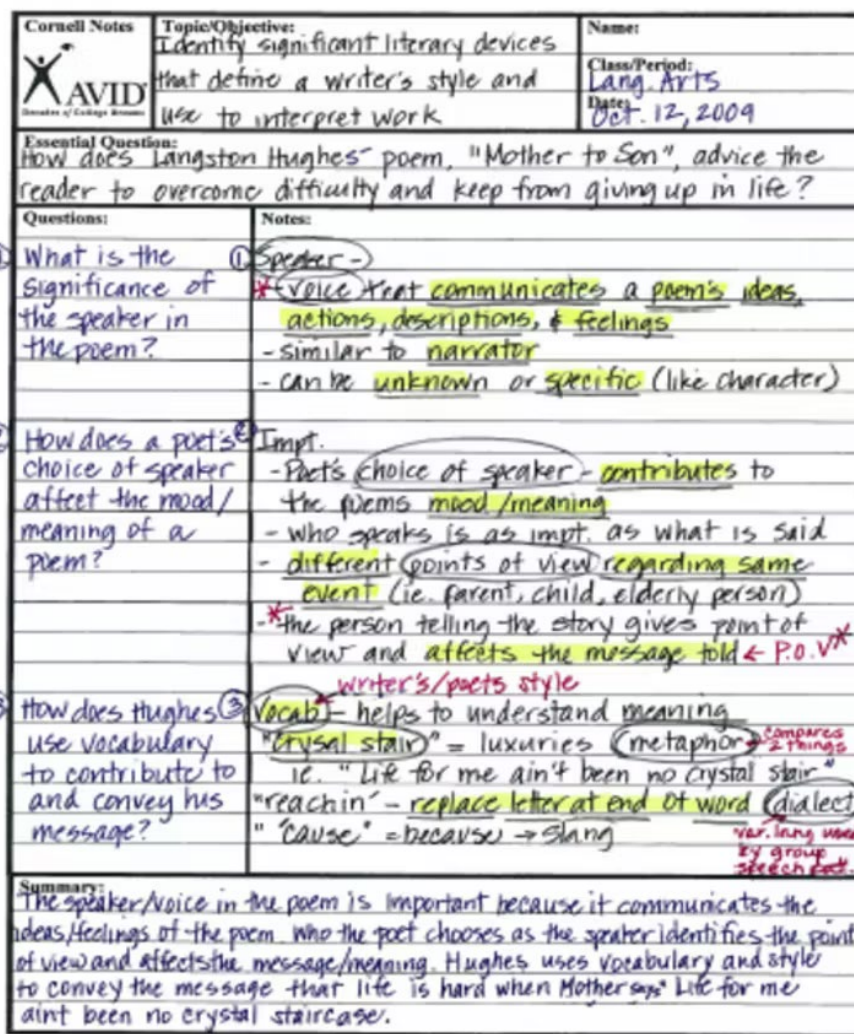 Cornell Notes
AVID
Decades of College Dreams
Topic/Objective:
Identify significant literary devices
that define a writer's style and
use to interpret work
Name:
Class/Period:
Lang. Arts
Date:
Oct. 12, 2009
Essential Question:
How does Langston Hughes' poem, "Mother to Son", advice the
reader to overcome difficulty and keep from giving up in life?
Questions:
What is the
significance of
the speaker in
the poem?
How does a poet's
choice of speaker
affect the mood/
meaning of a
poem?
How does Hughes
use vocabulary
to contribute to
and convey his
message?
Notes:
① Speaker -
* voice that communicates a poem's ideas,
actions, descriptions, & feelings
- similar to narrator
- can be unknown or specific (like character)
② Impt.
- Poet's choice of speaker - contributes to
the poems mood/meaning
- who speaks is as impt. as what is said
- different points of view regarding same
event (ie. parent, child, elderly person)
-* the person telling the story gives point of
view and affects the message told ← P.O.V*
writer's/poets style
③ Vocab - helps to understand meaning
"crysal stair" = luxuries metaphor → compares
2 things
ie. "Life for me ain't been no crystal stair"
"reachin" - replace letter at end of word dialect
" 'cause" = because → slang
var. lang used
by group
speech
Summary:
The speaker/voice in the poem is important because it communicates the
ideas/feelings of the poem. Who the poet chooses as the speaker identifies the point
of view and affects the message/meaning. Hughes uses vocabulary and style
to convey the message that life is hard when Mother says "Life for me
aint been no crystal staircase.